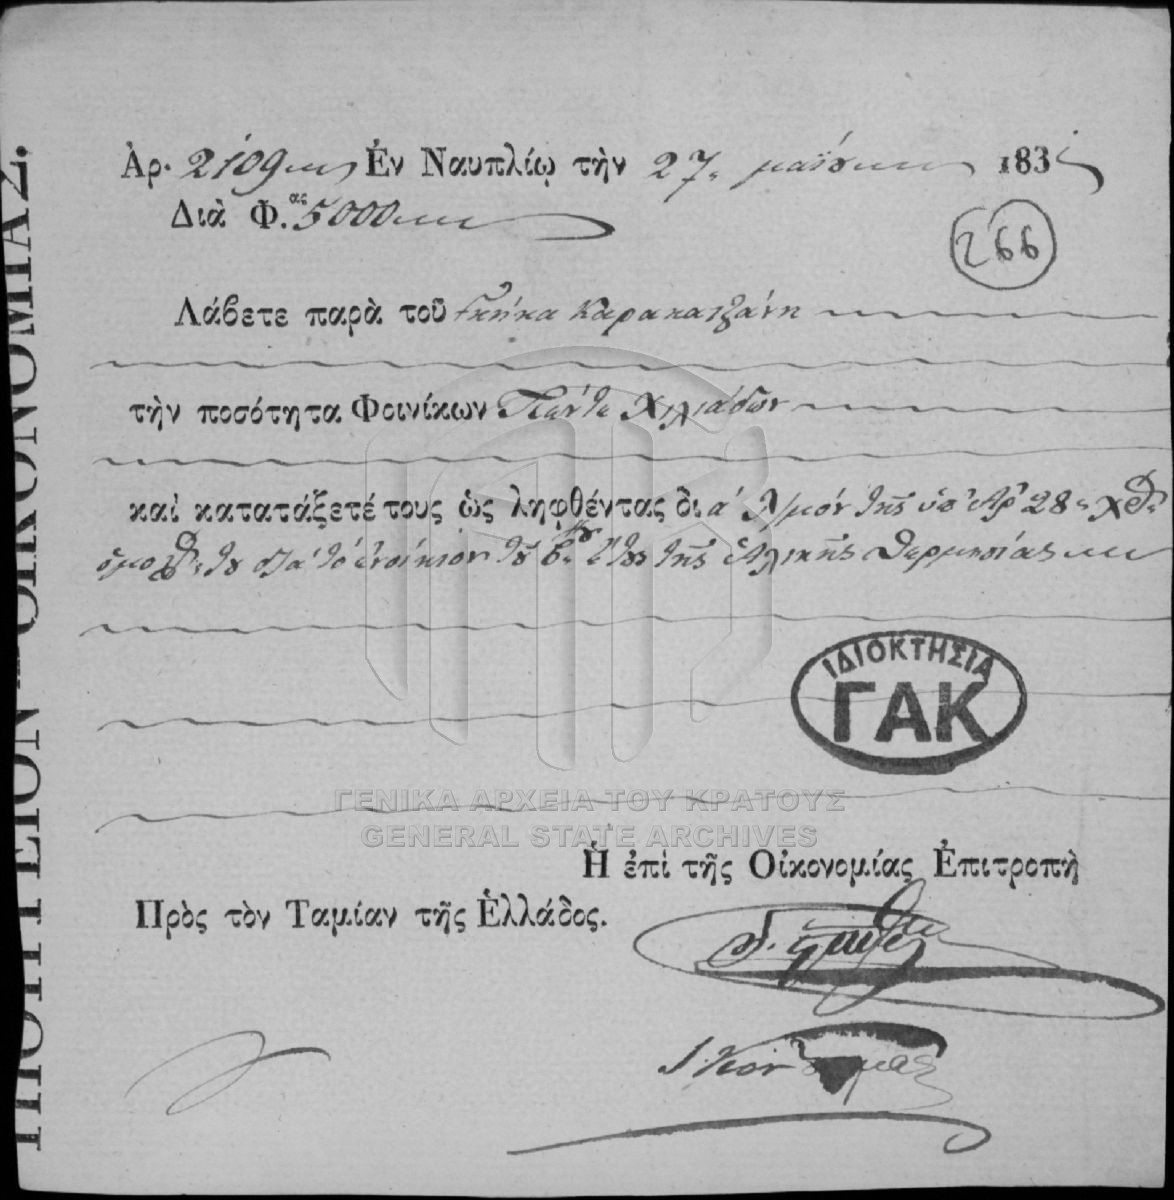 Ἀρ. 2109 Ἐν Ναυπλίῳ τὴν 27 μαΐου 183
Διὰ Φ.ας 5000
266
Λάβετε παρὰ τοῦ Γκίκα Καρακατζάνη
τὴν ποσότητα Φοινίκων Πέντε Χιλιάδων
καὶ κατατάξετέ τους ὡς ληφθέντας δι
τῆς ὑπ' Ἀρ 28
τὸ ἐνοίκιον τοῦ ἔτους τῆς Ἁλικῆς Θερμησίας
ΙΔΙΟΚΤΗΣΙΑ
ΓΑΚ
ΓΕΝΙΚΑ ΑΡΧΕΙΑ ΤΟΥ ΚΡΑΤΟΥΣ
GENERAL STATE ARCHIVES
Ἡ ἐπὶ τῆς Οἰκονομίας Ἐπιτροπὴ
Πρὸς τὸν Ταμίαν τῆς Ἑλλάδος.